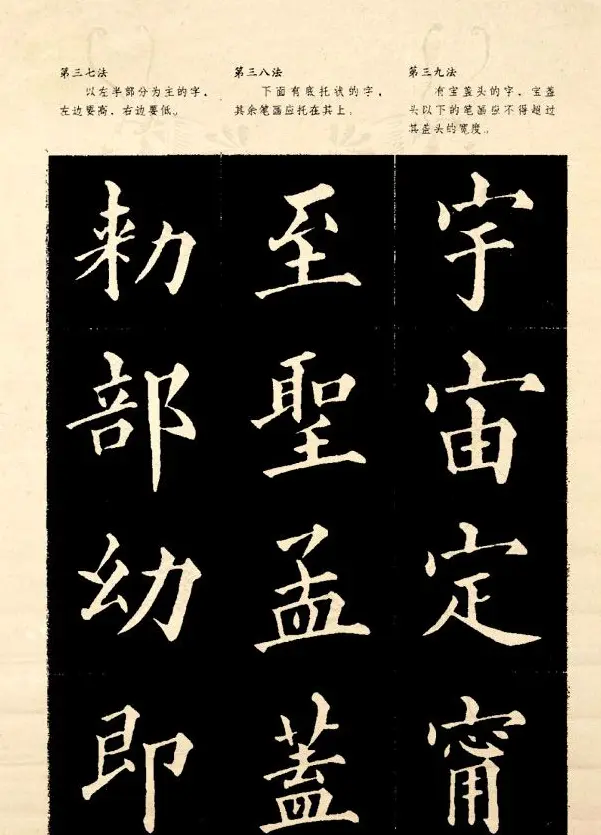 第三七法
以左半部分为主的字，
左边要高，右边要低。
第三八法
下面有底托状的字，
其余笔画应托在其上。
第三九法
有宝盖头的字，宝盖
头以下的笔画应不得超过
其盖头的宽度。
勑
部
幼
即
至
聖
孟
蓋
宇
宙
定
甯